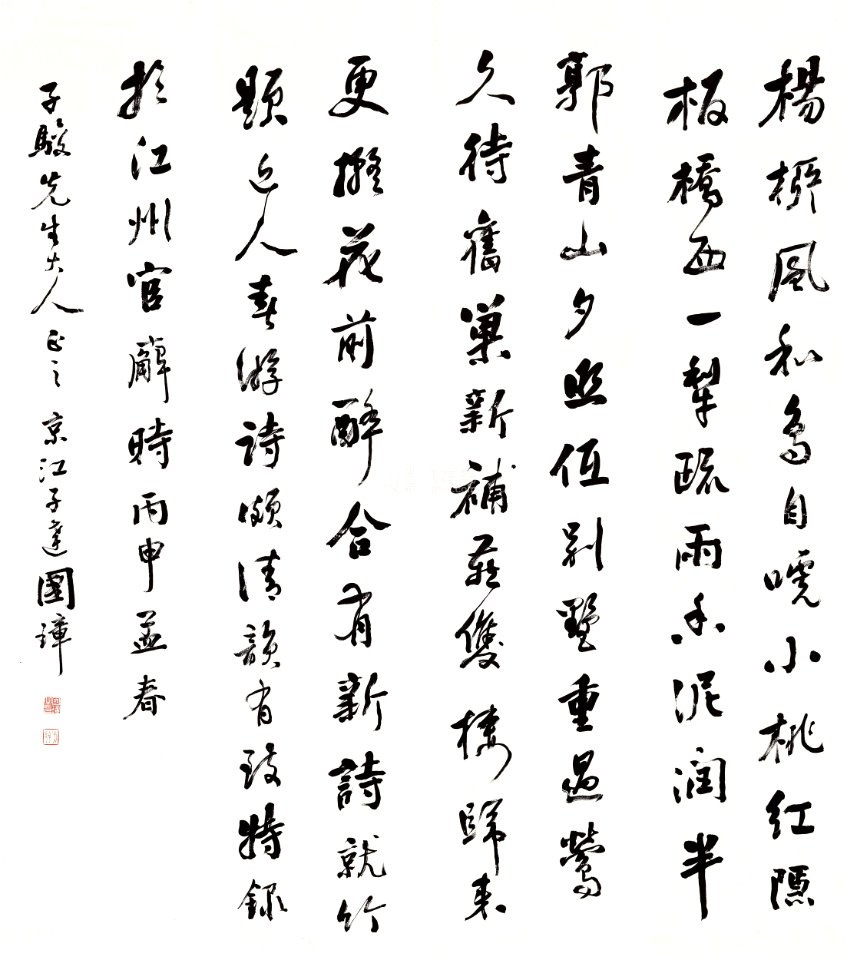 楊桺風和鳥自嘵小桃紅隱
板橋西一犁疏雨香泥潤半
郭青山夕照低別墅重過鶯
久待舊巢新補燕雙棲歸來
更擬花前醉合有新詩就竹
題近人春游詩頗清韻有致特錄
於江州官廨時丙申孟春
子駿先生大人正之 京江子達國璋